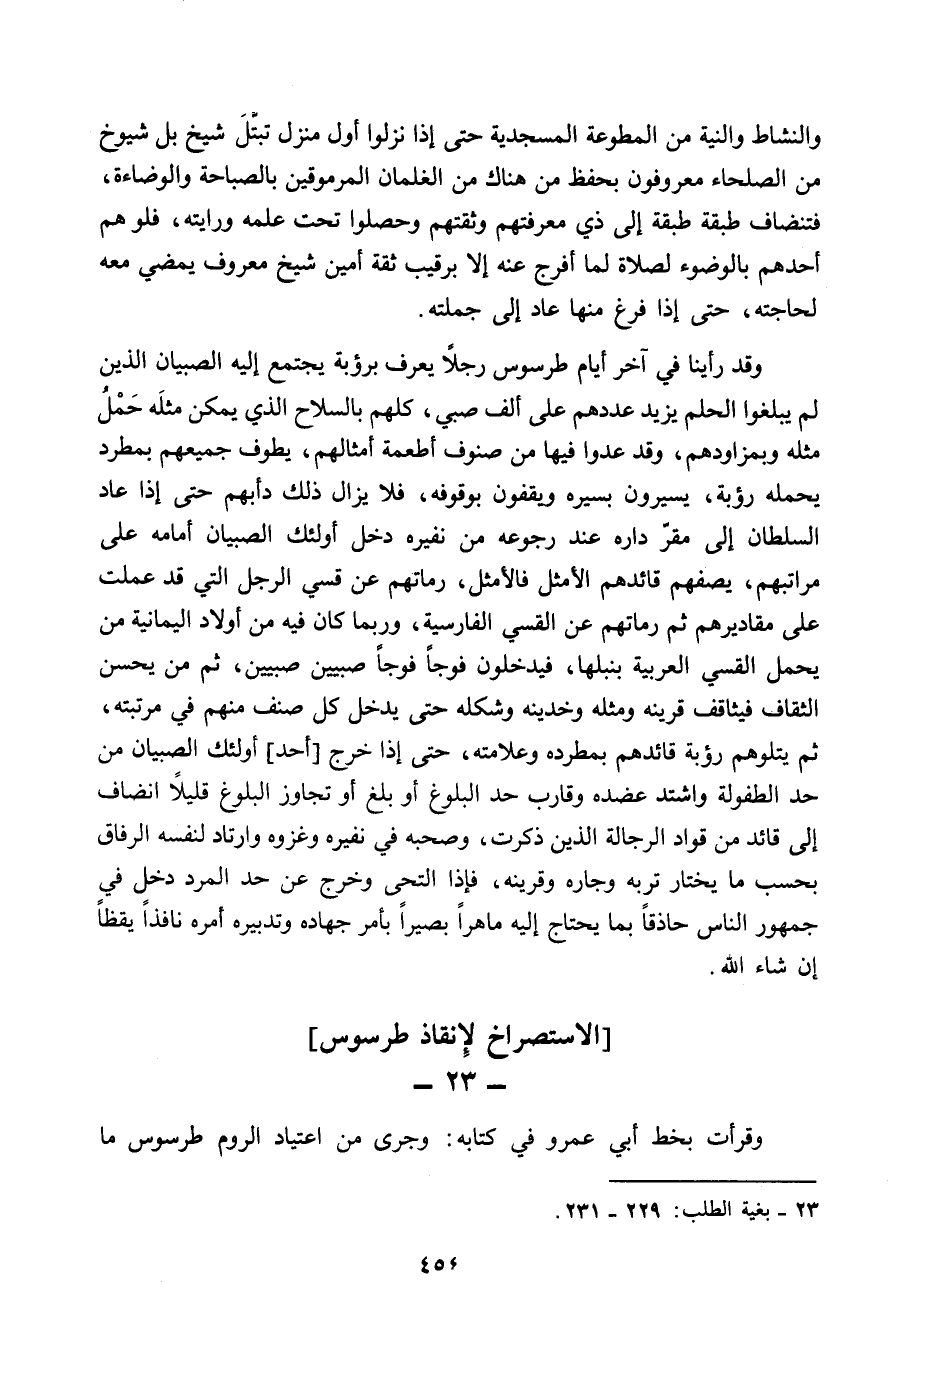 والنشاط والنية من المطوعة المسجدية حتى إذا نزلوا أول منزل تبتّلَ شيخ بل شيوخ
من الصلحاء معروفون بحفظ من هناك من الغلمان المرموقين بالصباحة والوضاءة،
فتنضاف طبقة طبقة إلى ذي معرفتهم وثقتهم وحصلوا تحت علمه ورايته، فلو هم
أحدهم بالوضوء لصلاة لما أفرج عنه إلا برقيب ثقة أمين شيخ معروف يمضي معه
لحاجته، حتى إذا فرغ منها عاد إلى جملته.
وقد رأينا في آخر أيام طرسوس رجلاً يعرف برؤبة يجتمع إليه الصبيان الذين
لم يبلغوا الحلم يزيد عددهم على ألف صبي، كلهم بالسلاح الذي يمكن مثلَه حَمْلُ
مثله وبمزاودهم، وقد عدوا فيها من صنوف أطعمة أمثالهم، يطوف جميعهم بمطرد
يحمله رؤبة، يسيرون بسيره ويقفون بوقوفه، فلا يزال ذلك دأبهم حتى إذا عاد
السلطان إلى مقرّ داره عند رجوعه من نفيره دخل أولئك الصبيان أمامه على
مراتبهم، يصفهم قائدهم الأمثل فالأمثل، رماتهم عن قسي الرجل التي قد عملت
على مقاديرهم ثم رماتهم عن القسي الفارسية، وربما كان فيه من أولاد اليمانية من
يحمل القسي العربية بنبلها، فيدخلون فوجاً فوجاً صبيين صبيين، ثم من يحسن
الثقاف فيثاقف قرينه ومثله وخدينه وشكله حتى يدخل كل صنف منهم في مرتبته،
ثم يتلوهم رؤبة قائدهم بمطرده وعلامته، حتى إذا خرج [أحد] أولئك الصبيان من
حد الطفولة واشتد عضده وقارب حد البلوغ أو بلغ أو تجاوز البلوغ قليلاً انضاف
إلى قائد من قواد الرجالة الذين ذكرت، وصحبه في نفيره وغزوه وارتاد لنفسه الرفاق
بحسب ما يختار تربه وجاره وقرينه، فإذا التحى وخرج عن حد المرد دخل في
جمهور الناس حاذقاً بما يحتاج إليه ماهراً بصيراً بأمر جهاده وتدبيره أمره نافذاً يقظاً
إن شاء الله.
[الاستصراخ لإنقاذ طرسوس]
- ٢٣ -
وقرأت بخط أبي عمرو في كتابه: وجرى من اعتياد الروم طرسوس ما
٢٣ - بغية الطلب: ٢٢٩ - ٢٣١.
٤٥٤